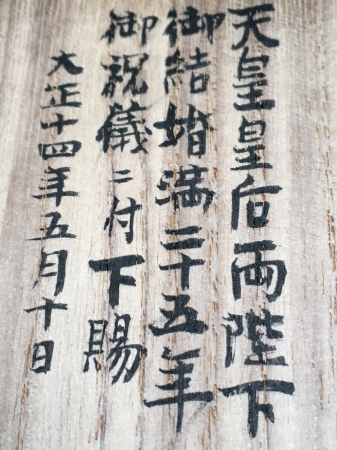 天皇皇后両陛下
御結婚満二十五年
御祝儀ニ付下賜
大正十四年五月十日